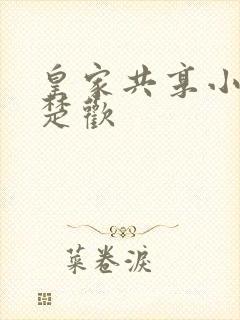 皇家共享小
楚歡
菜卷淚